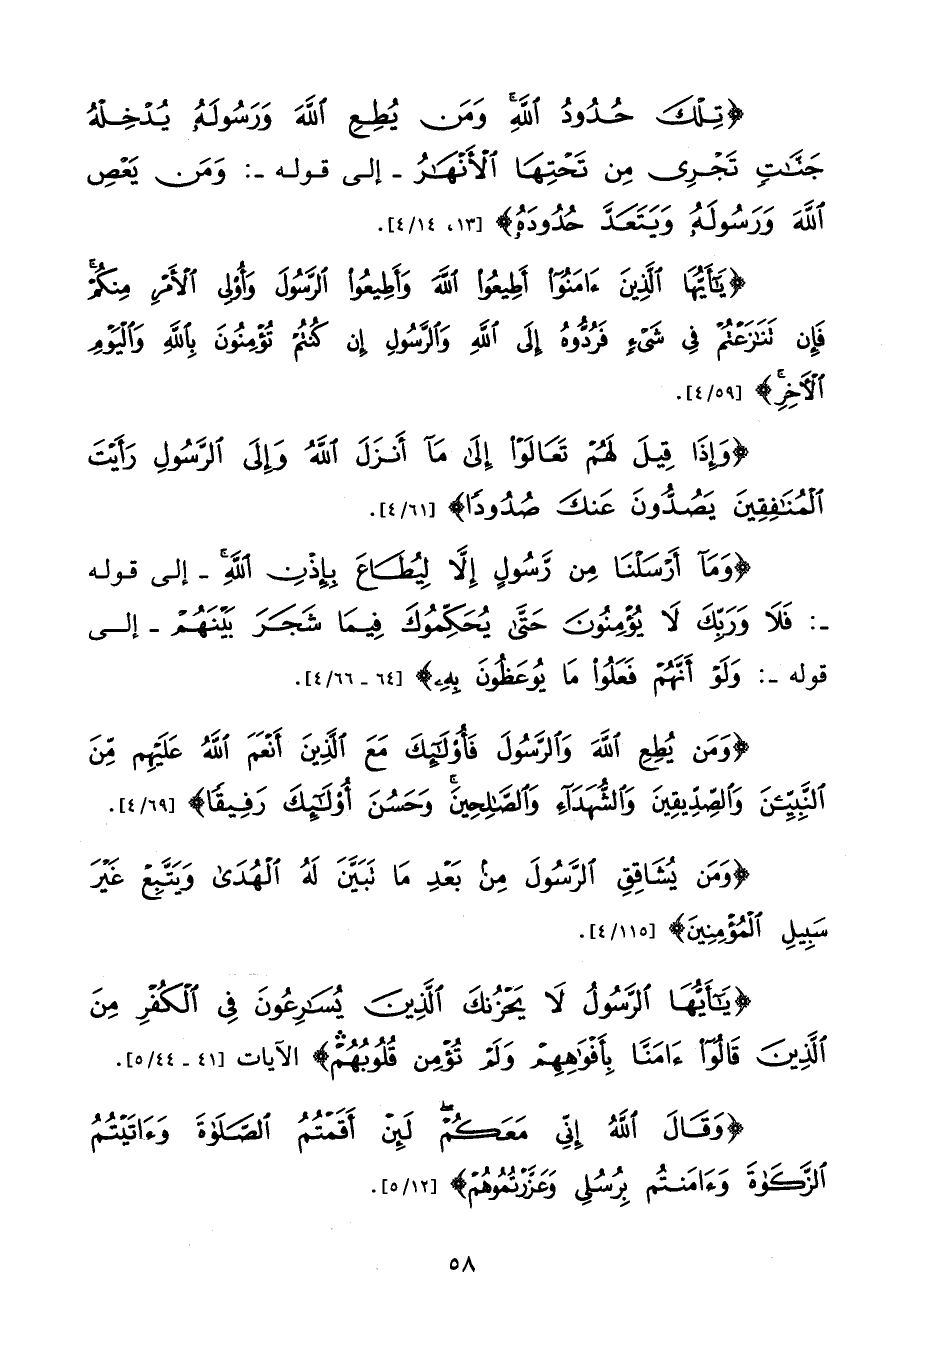 ﴿تِلْكَ حُدُودُ ٱللَّهِۚ وَمَن يُطِعِ ٱللَّهَ وَرَسُولَهُۥ يُدْخِلْهُ
جَنَّٰتٍ تَجْرِى مِن تَحْتِهَا ٱلْأَنْهَٰرُ ـ إلى قوله ـ: وَمَن يَعْصِ
ٱللَّهَ وَرَسُولَهُۥ وَيَتَعَدَّ حُدُودَهُۥ﴾ [١٣، ٤/١٤].
﴿يَٰٓأَيُّهَا ٱلَّذِينَ ءَامَنُوٓا۟ أَطِيعُوا۟ ٱللَّهَ وَأَطِيعُوا۟ ٱلرَّسُولَ وَأُو۟لِى ٱلْأَمْرِ مِنكُمْۖ
فَإِن تَنَٰزَعْتُمْ فِى شَىْءٍ فَرُدُّوهُ إِلَى ٱللَّهِ وَٱلرَّسُولِ إِن كُنتُمْ تُؤْمِنُونَ بِٱللَّهِ وَٱلْيَوْمِ
ٱلْءَاخِرِۚ﴾ [٤/٥٩].
﴿وَإِذَا قِيلَ لَهُمْ تَعَالَوْا۟ إِلَىٰ مَآ أَنزَلَ ٱللَّهُ وَإِلَى ٱلرَّسُولِ رَأَيْتَ
ٱلْمُنَٰفِقِينَ يَصُدُّونَ عَنكَ صُدُودًا﴾ [٤/٦١].
﴿وَمَآ أَرْسَلْنَا مِن رَّسُولٍ إِلَّا لِيُطَاعَ بِإِذْنِ ٱللَّهِۚ ـ إلى قوله
ـ: فَلَا وَرَبِّكَ لَا يُؤْمِنُونَ حَتَّىٰ يُحَكِّمُوكَ فِيمَا شَجَرَ بَيْنَهُمْ ـ إلى
قوله ـ: وَلَوْ أَنَّهُمْ فَعَلُوا۟ مَا يُوعَظُونَ بِهِۦ﴾ [٦٤ ـ ٤/٦٦].
﴿وَمَن يُطِعِ ٱللَّهَ وَٱلرَّسُولَ فَأُو۟لَٰٓئِكَ مَعَ ٱلَّذِينَ أَنْعَمَ ٱللَّهُ عَلَيْهِم مِّنَ
ٱلنَّبِيِّـۧنَ وَٱلصِّدِّيقِينَ وَٱلشُّهَدَآءِ وَٱلصَّٰلِحِينَۚ وَحَسُنَ أُو۟لَٰٓئِكَ رَفِيقًا﴾ [٤/٦٩].
﴿وَمَن يُشَاقِقِ ٱلرَّسُولَ مِنۢ بَعْدِ مَا تَبَيَّنَ لَهُ ٱلْهُدَىٰ وَيَتَّبِعْ غَيْرَ
سَبِيلِ ٱلْمُؤْمِنِينَ﴾ [٤/١١٥].
﴿يَٰٓأَيُّهَا ٱلرَّسُولُ لَا يَحْزُنكَ ٱلَّذِينَ يُسَٰرِعُونَ فِى ٱلْكُفْرِ مِنَ
ٱلَّذِينَ قَالُوٓا۟ ءَامَنَّا بِأَفْوَٰهِهِمْ وَلَمْ تُؤْمِن قُلُوبُهُمْۛ﴾ الآيات [٤١ ـ ٥/٤٤].
﴿وَقَالَ ٱللَّهُ إِنِّى مَعَكُمْۖ لَئِنْ أَقَمْتُمُ ٱلصَّلَوٰةَ وَءَاتَيْتُمُ
ٱلزَّكَوٰةَ وَءَامَنتُم بِرُسُلِى وَعَزَّرْتُمُوهُمْ﴾ [٥/١٢].
٥٨